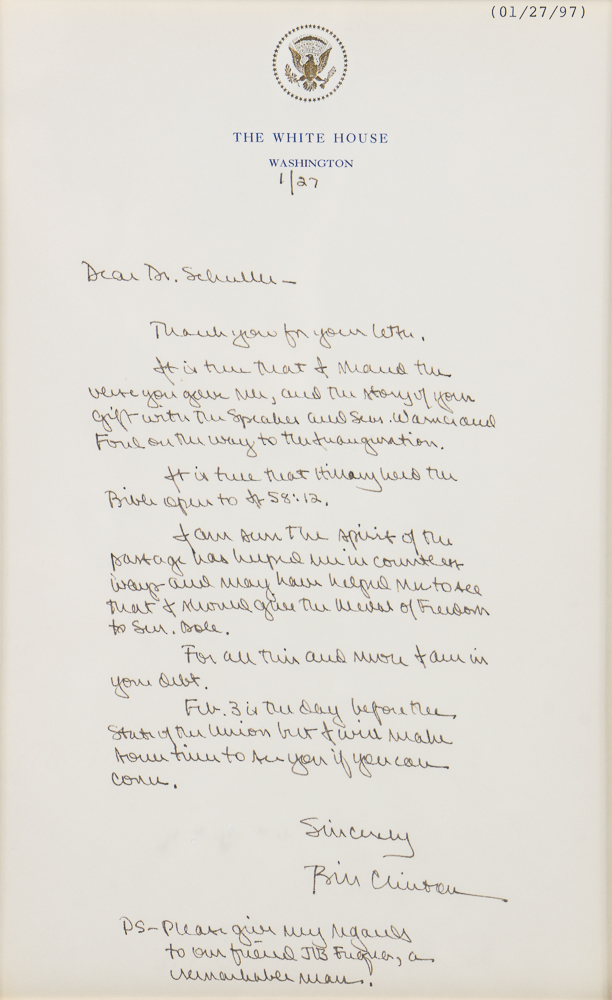 (01/27/97)
THE WHITE HOUSE
WASHINGTON
1/27
Dear Dr. Schuller –
Thank you for your letter.
It is true that I shared the
verse you gave me, and the story of your
gift with the Speaker and Sens. Warner and
Ford on the way to the Inauguration.
It is true that Hillary held the
Bible open to Is 58:12.
I am sure the spirit of the
passage has helped me in countless
ways and may have helped me to see
that I should give the Medal of Freedom
to Sen. Dole.
For all this and more I am in
your debt.
Feb. 3 is the day before the
State of the Union but I will make
some time to see you if you can
come.
Sincerely
Bill Clinton
PS – Please give my regards
to our friend JB Fuqua, a
remarkable man.